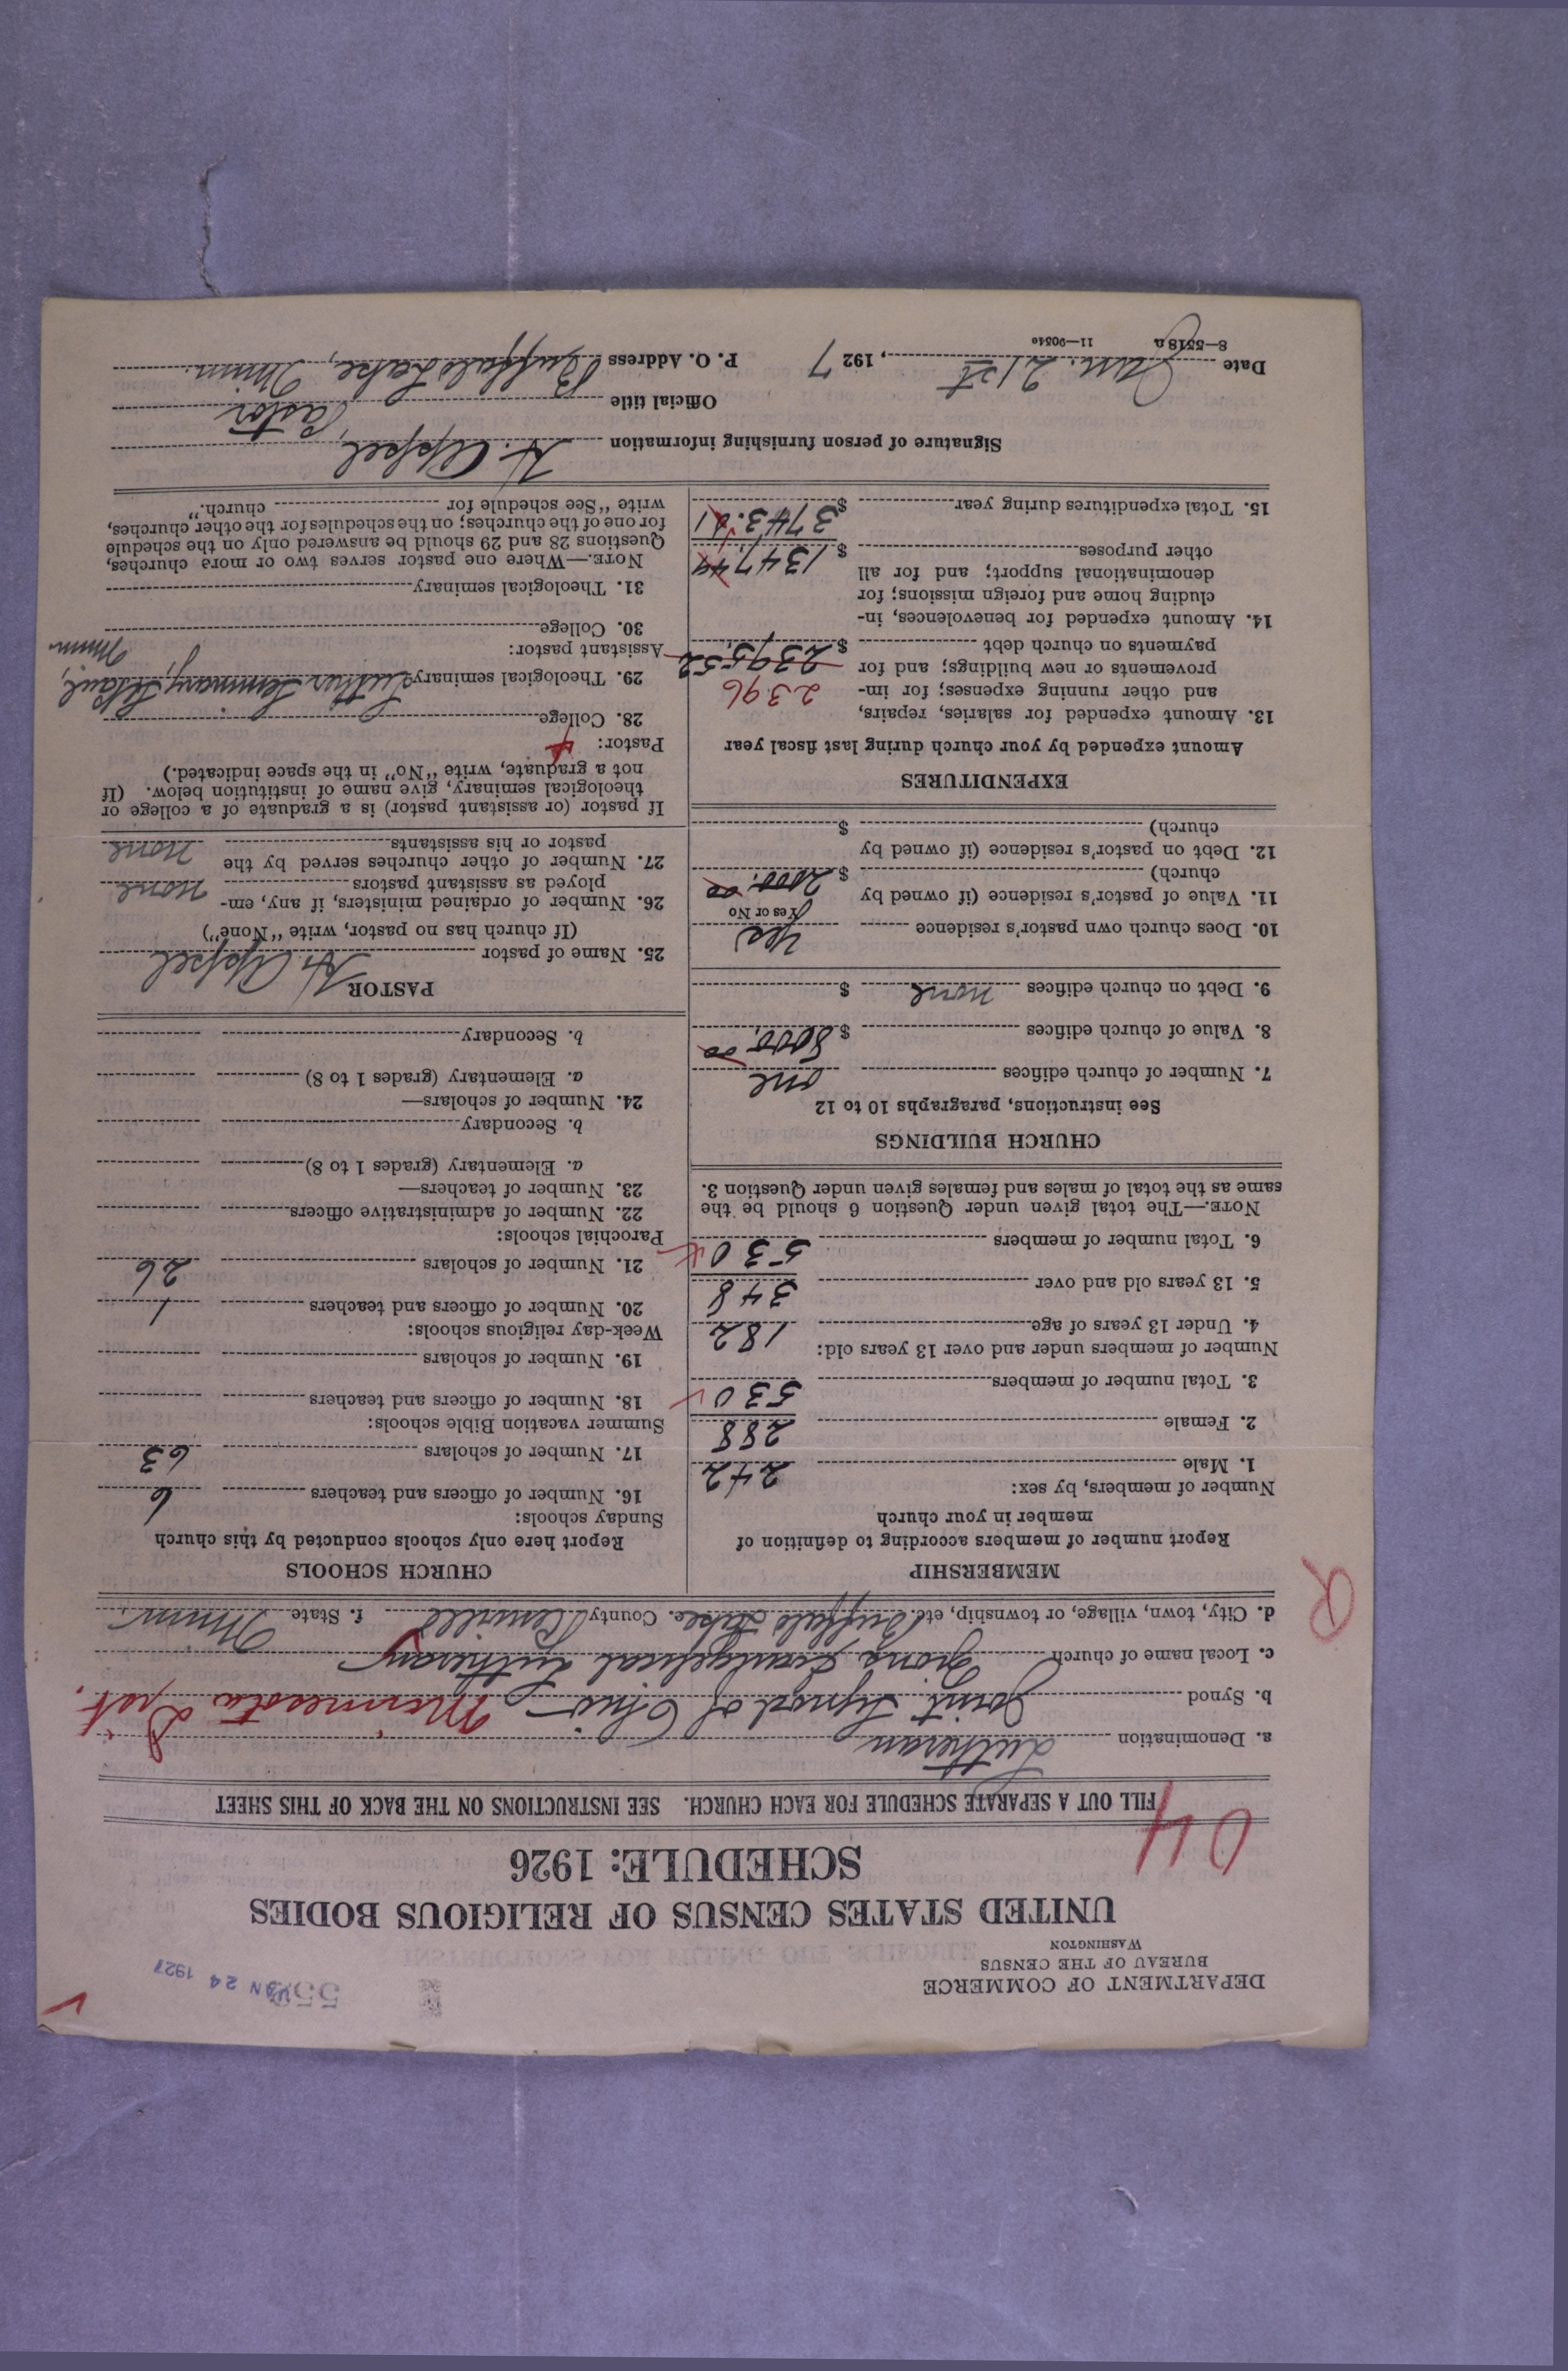 DEPARTMENT OF COMMERCE
BUREAU OF THE CENSUS
WASHINGTON
JAN 24 1927
UNITED STATES CENSUS OF RELIGIOUS BODIES
SCHEDULE: 1926
04
FILL OUT A SEPARATE SCHEDULE FOR EACH CHURCH. SEE INSTRUCTIONS ON THE BACK OF THIS SHEET
a. Denomination Lutheran
b. Synod Joint Synod of Ohio Minnesota Dist.
c. Local name of church Evangelical Lutheran
d. City, town, village, or township, etc. Buffalo Lake e. County Renville f. State Minn.
R
MEMBERSHIP
Report number of members according to definition of
member in your church
Number of members, by sex:
1. Male 242
2. Female 288
3. Total number of members 530
Number of members under and over 13 years old:
4. Under 13 years of age 182
5. 13 years old and over 348
6. Total number of members 530
NOTE.—The total given under Question 6 should be the
same as the total of males and females given under Question 3.
CHURCH BUILDINGS
See instructions, paragraphs 10 to 12
7. Number of church edifices one
8. Value of church edifices $ 8000.00
9. Debt on church edifices none $
10. Does church own pastor's residence Yes
Yes or No
11. Value of pastor's residence (if owned by
church) $ 2000.00
12. Debt on pastor's residence (if owned by
church) $
EXPENDITURES
Amount expended by your church during last fiscal year
13. Amount expended for salaries, repairs,
and other running expenses; for im- 2396
provements or new buildings; and for 2395.52
payments on church debt $
14. Amount expended for benevolences, in-
cluding home and foreign missions; for
denominational support; and for all
other purposes $ 1347.49
15. Total expenditures during year $ 3743.01
CHURCH SCHOOLS
Report here only schools conducted by this church
Sunday schools:
16. Number of officers and teachers 6
17. Number of scholars 63
Summer vacation Bible schools:
18. Number of officers and teachers
19. Number of scholars
Week-day religious schools:
20. Number of officers and teachers 1
21. Number of scholars 26
Parochial schools:
22. Number of administrative officers
23. Number of teachers—
a. Elementary (grades 1 to 8)
b. Secondary
24. Number of scholars—
a. Elementary (grades 1 to 8)
b. Secondary
PASTOR
25. Name of pastor H. Appel
(If church has no pastor, write "None")
26. Number of ordained ministers, if any, em-
ployed as assistant pastors none
27. Number of other churches served by the
pastor or his assistants none
If pastor (or assistant pastor) is a graduate of a college or
theological seminary, give name of institution below. (If
not a graduate, write "No" in the space indicated.)
Pastor:
28. College
29. Theological seminary Luther Seminary, St Paul, Minn
Assistant pastor:
30. College
31. Theological seminary
NOTE.—Where one pastor serves two or more churches,
Questions 28 and 29 should be answered only on the schedule
for one of the churches; on the schedules for the other churches,
write "See schedule for church."
Signature of person furnishing information H. Appel
Official title Pastor
Date Jan. 21st, 1927 P. O. Address Buffalo Lake, Minn.
8—5518a 11—9051e